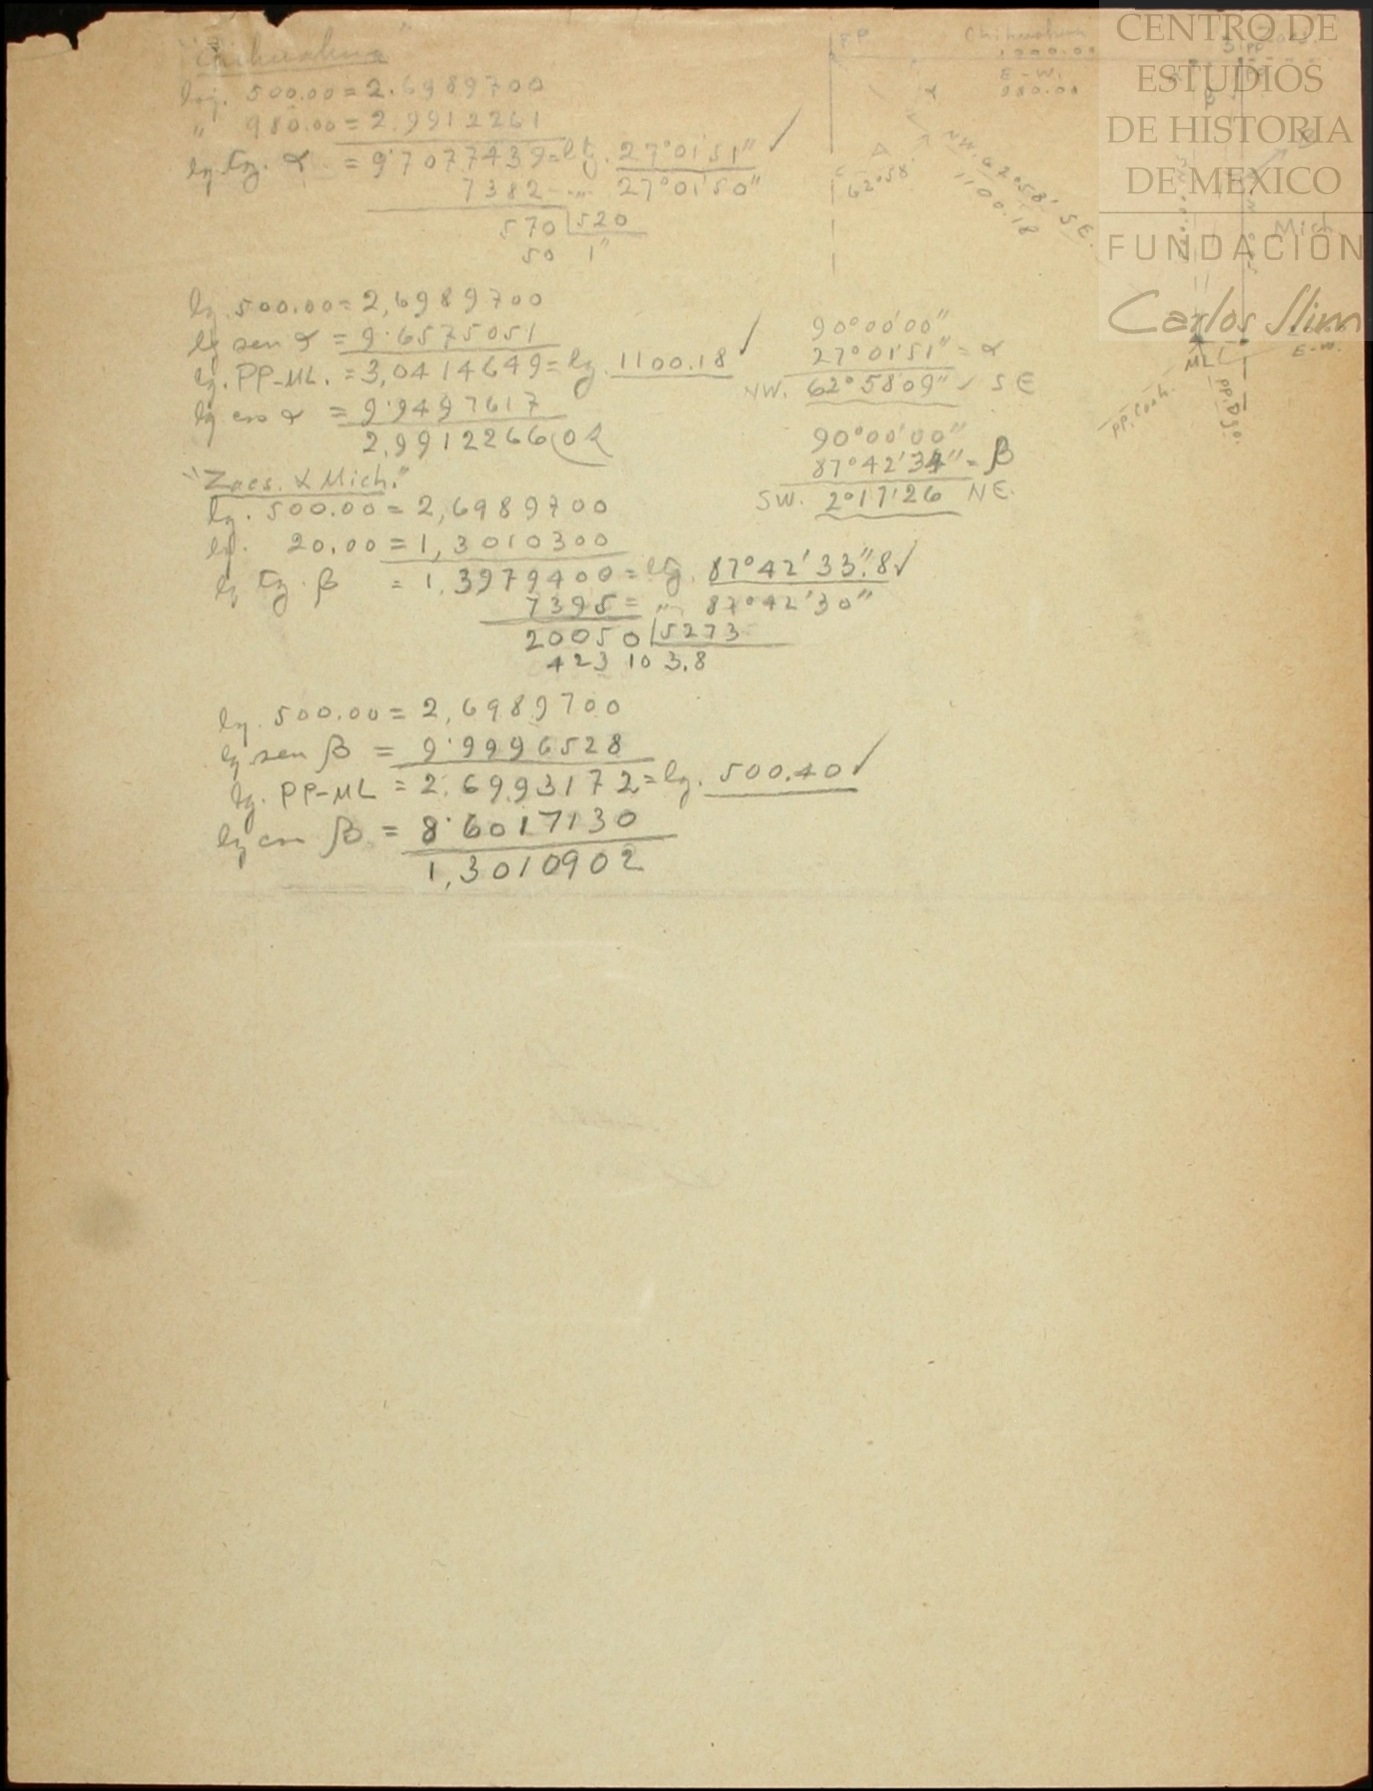 "Chihuahua"
log. 500.00 = 2.6989700
" 980.00 = 2.9912261
lg. Tg. α = 9.7077439 = lt. 27°01'51" ✓
7382 ... " 27°01'50"
570 | 520
50 1"
lg. 500.00 = 2,6989700
lg sen α = 9.6575051
lg. PP-ML. = 3,0414649 = lg. 1100.18 ✓
lg cos α = 9.9497617
2.9912266 OK
"Zacs. & Mich."
lg. 500.00 = 2,6989700
lg. 20.00 = 1,3010300
lg Tg. β = 1.3979400 = ltg. 87°42'33".8 ✓
7395 = " 87°42'30"
20050 | 5273
42310 3.8
lg. 500.00 = 2,6989700
lg sen β = 9.9996528
lg. PP-ML = 2.6993172 = lg. 500.40 ✓
lg cos β = 8.6017130
1,3010902
90°00'00"
27°01'51" = α
NW. 62°58'09" ✓ SE
90°00'00"
87°42'34" = β
SW. 2°17'26 NE.
PP
Chihuahua
E-W.
980.00
α
62°58'
NW. 62°58' SE.
1100.18
PP
Mich.
ML
E-W.
PP. Coah.
PP. Dgo.
CENTRO DE
ESTUDIOS
DE HISTORIA
DE MEXICO
FUNDACIÓN
Carlos Slim